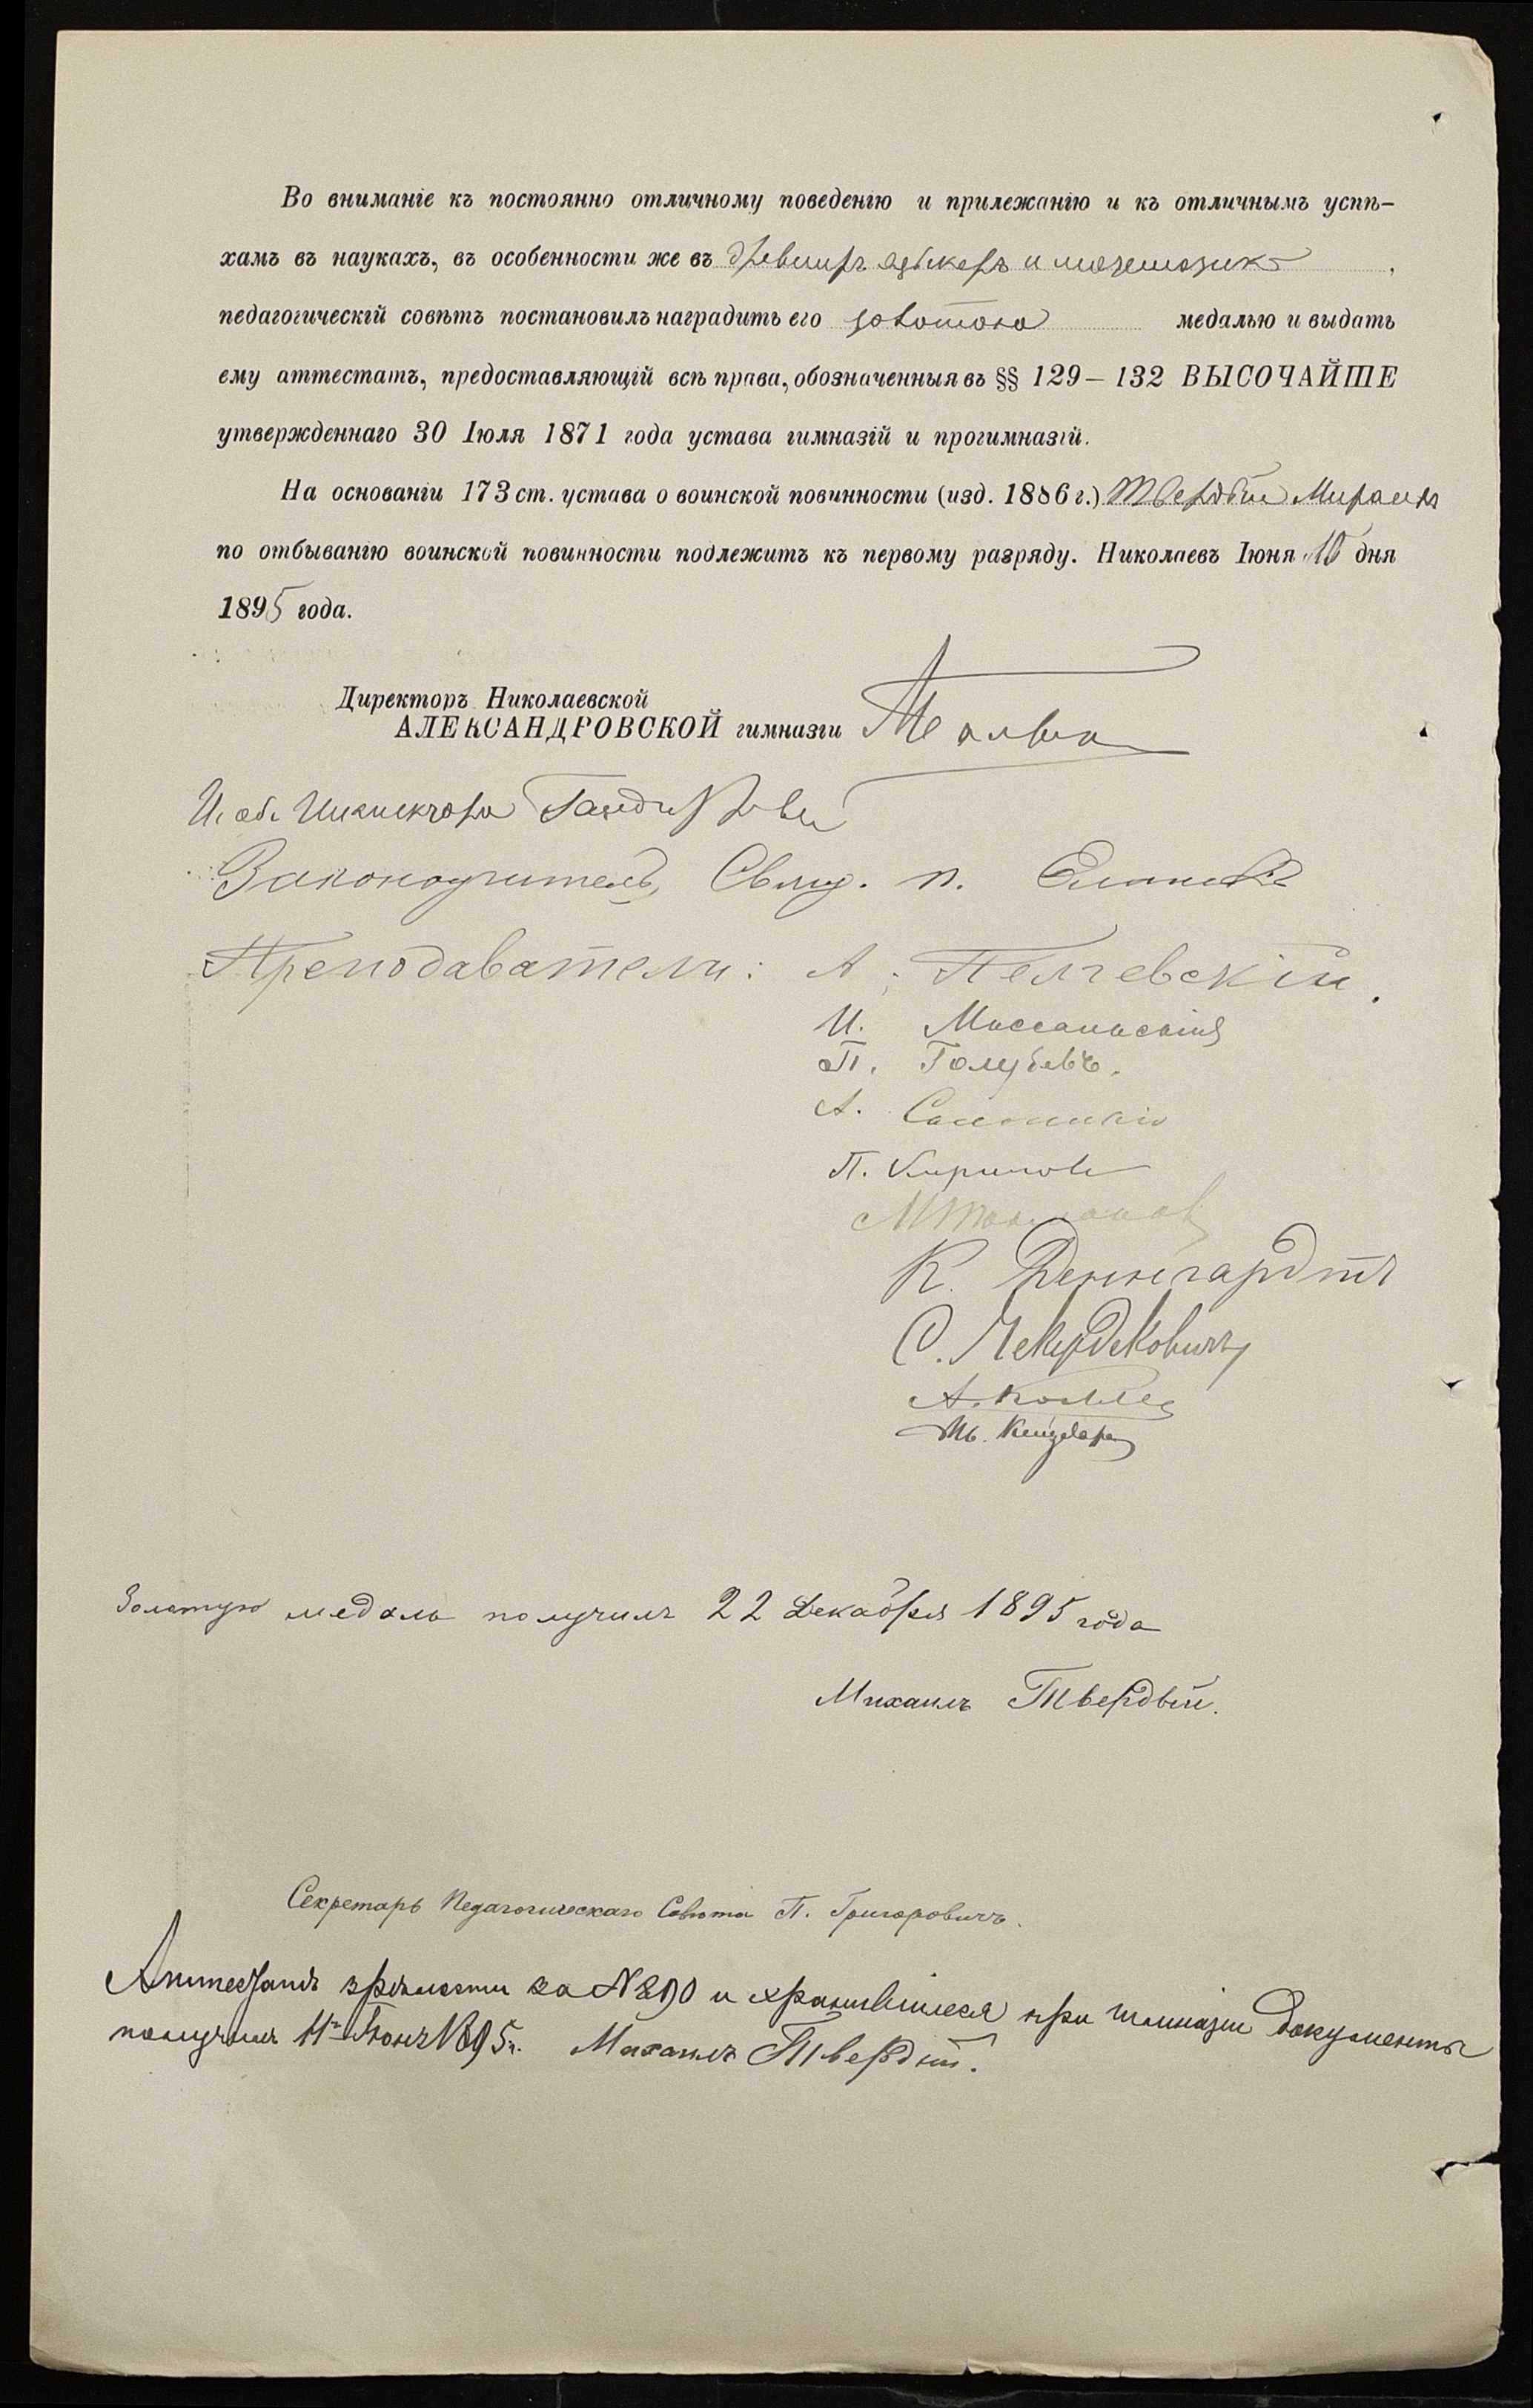 Во вниманіе къ постоянно отличному поведенію и прилежанію и къ отличнымъ успѣ-
хамъ въ наукахъ, въ особенности же въ древнихъ языкахъ и математикѣ,
педагогическій совѣтъ постановилъ наградить его золотою медалью и выдать
ему аттестатъ, предоставляющій всѣ права, обозначенныя въ §§ 129–132 ВЫСОЧАЙШЕ
утвержденнаго 30 Іюля 1871 года устава гимназій и прогимназій.
На основаніи 173 ст. устава о воинской повинности (изд. 1886 г.) Твердый Михаилъ
по отбыванію воинской повинности подлежитъ къ первому разряду. Николаевъ Іюня 10 дня
1895 года.
Директоръ Николаевской
АЛЕКСАНДРОВСКОЙ гимназіи
И. об. Инспектора
Законоучитель, Свящ. п.
Преподаватели: А. Пелчевскій.
И.
П. Голубевъ.
А.
П. Кириловъ
К. Деннгардтъ
С.
А.
Золотую медаль получилъ 22 Декабря 1895 года
Михаилъ Твердый.
Секретарь Педагогическаго Совѣта П. Григоровичъ.
Аттестатъ зрѣлости за № 290 и хранившіеся при гимназіи документы
получилъ 11 Іюня 1895 г. Михаилъ Твердый.